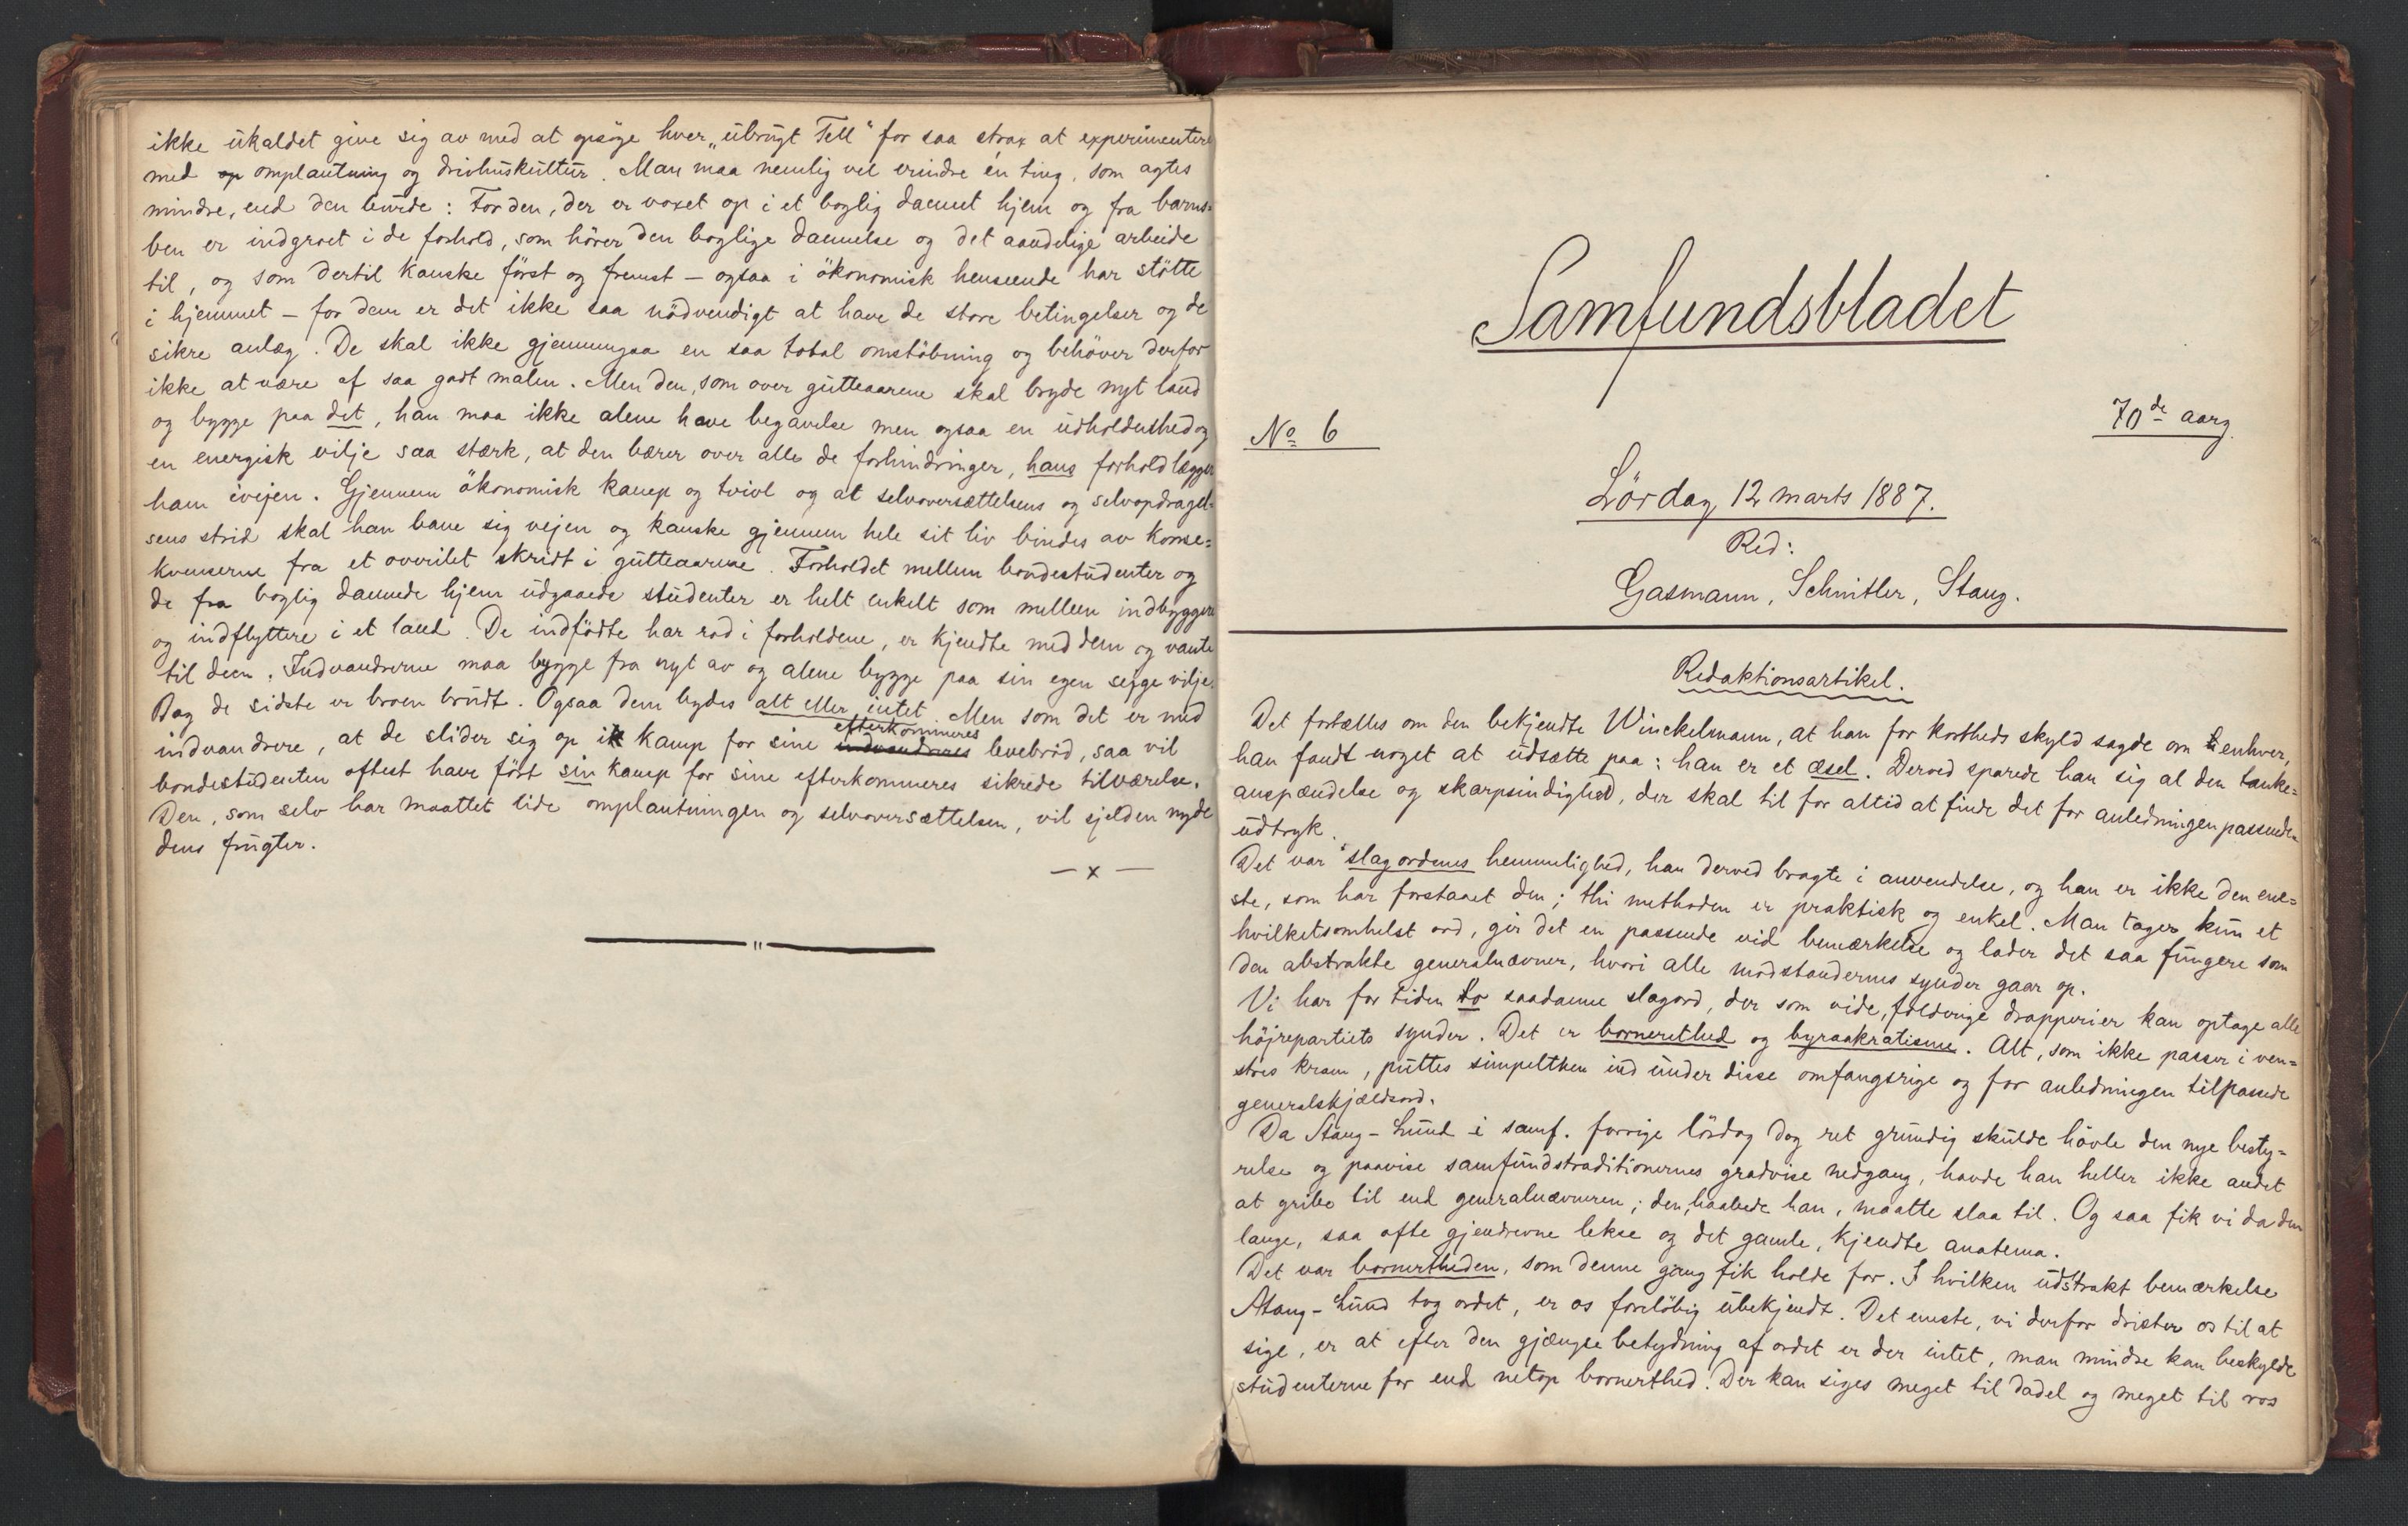 ikke ukaldet give sig av med at opsöge hver „ubrugt Tell“ for saa strax at experimentere
med op omplantning og drivhuskultur. Man maa nemlig vel erindre én ting, som agtes
mindre, end den burde: For den, der er voxet op i et boglig dannet hjem og fra barns=
ben er indgroet i de forhold, som hörer den boglige dannelse og det aandelige arbeide
til, og som dertil kanske först og fremst – ogsaa i ökonomisk henseende har stötte
i hjemmet – for dem er det ikke saa nödvendigt at have de store betingelser og de
sikre anlæg. De skal ikke gjennemgaa en saa total omstöbning og behöver derfor
ikke at være af saa godt malm. Men den, som over gutteaarene skal bryde nyt land
og bygge paa det, han maa ikke alene have begavelse men ogsaa en udholdenhed og
en energisk vilje saa stærk, at den bærer over alle de forhindringer, hans forhold lægger
ham ivejen. Gjennem ökonomisk kamp og tvivl og at selvoversættelsens og selvopdragel=
sens strid skal han bane sig vejen og kanske gjennem hele sit liv bindes av konse=
kvenserne fra et overilet skridt i gutteaarene. Forholdet mellem bondestudenter og
de fra boglig dannede hjem udgaaede studenter er helt enkelt som mellem indbyggere
og indflyttere i et land. De indfödte har rod i forholdene, er kjendte med dem og vante
til dem. Indvandrerne maa bygge fra nyt av og alene bygge paa sin egen seige vilje.
Bag de sidste er broen brudt. Ogsaa dem bydes alt eller intet. Men som det er med
indvandrere, at de slider sig op i kamp for sine indvandreres efterkommeres levebröd, saa vil
bondestudenten oftest have fört sin kamp for sine efterkommeres sikrede tilværelse.
Den, som selv har maattet lide omplantningen og selvoversættelsen, vil sjelden nyde
dens frugter.
– x –
"
Samfundsbladet
No 6
70de aarg.
Lördag 12 marts 1887.
Red:
Gasmann, Schnitler, Stang.
Redaktionsartikel.
Det fortælles om den bekjendte Winckelmann, at han for kortheds skyld sagde om enhver,
han fandt noget at udsætte paa: han er et æsel. Derved sparede han sig al den tanke=
anspændelse og skarpsindighed, der skal til for altid at finde det for anledningen passende
udtryk.
Det var slagordenes hemmelighed, han derved bragte i anvendelse, og han er ikke den ene=
ste, som har forstaaet den; thi methoden er praktisk og enkel. Man tager kun et
hvilketsomhelst ord, gir det en passende vid bemærkelse og lader det saa fungere som
den abstrakte generalnævner, hvori alle modstandernes synder gaar op.
Vi har for tiden to saadanne slagord, der som vide, folderige drapperier kan optage alle
höjrepartiets synder. Det er bornerethed og byraakratisme. Alt, som ikke passer i ven=
stres kram, puttes simpelthen ind under disse omfangsrige og for anledningen tilpassede
generalskjældsord.
Da Stang-Lund i samf. forrige lördag dog ret grundig skulde hövle den nye besty=
relse og paavise samfundstraditionernes gradvise nedgang, havde han heller ikke andet
at gribe til end generalnævneren; den, haabede han, maatte slaa til. Og saa fik vi da den
lange, saa ofte gjendrevne lekse og det gamle, kjendte anatema.
Det var bornertheden, som denne gang fik holde for. I hvilken udstrakt bemærkelse
Stang-Lund tog ordet, er os forelöbig ubekjendt. Det eneste, vi derfor drister os til at
sige, er at efter den gjængse betydning af ordet er der intet, man mindre kan beskylde
studenterne for end netop bornerthed. Der kan siges meget til dadel og meget til ros